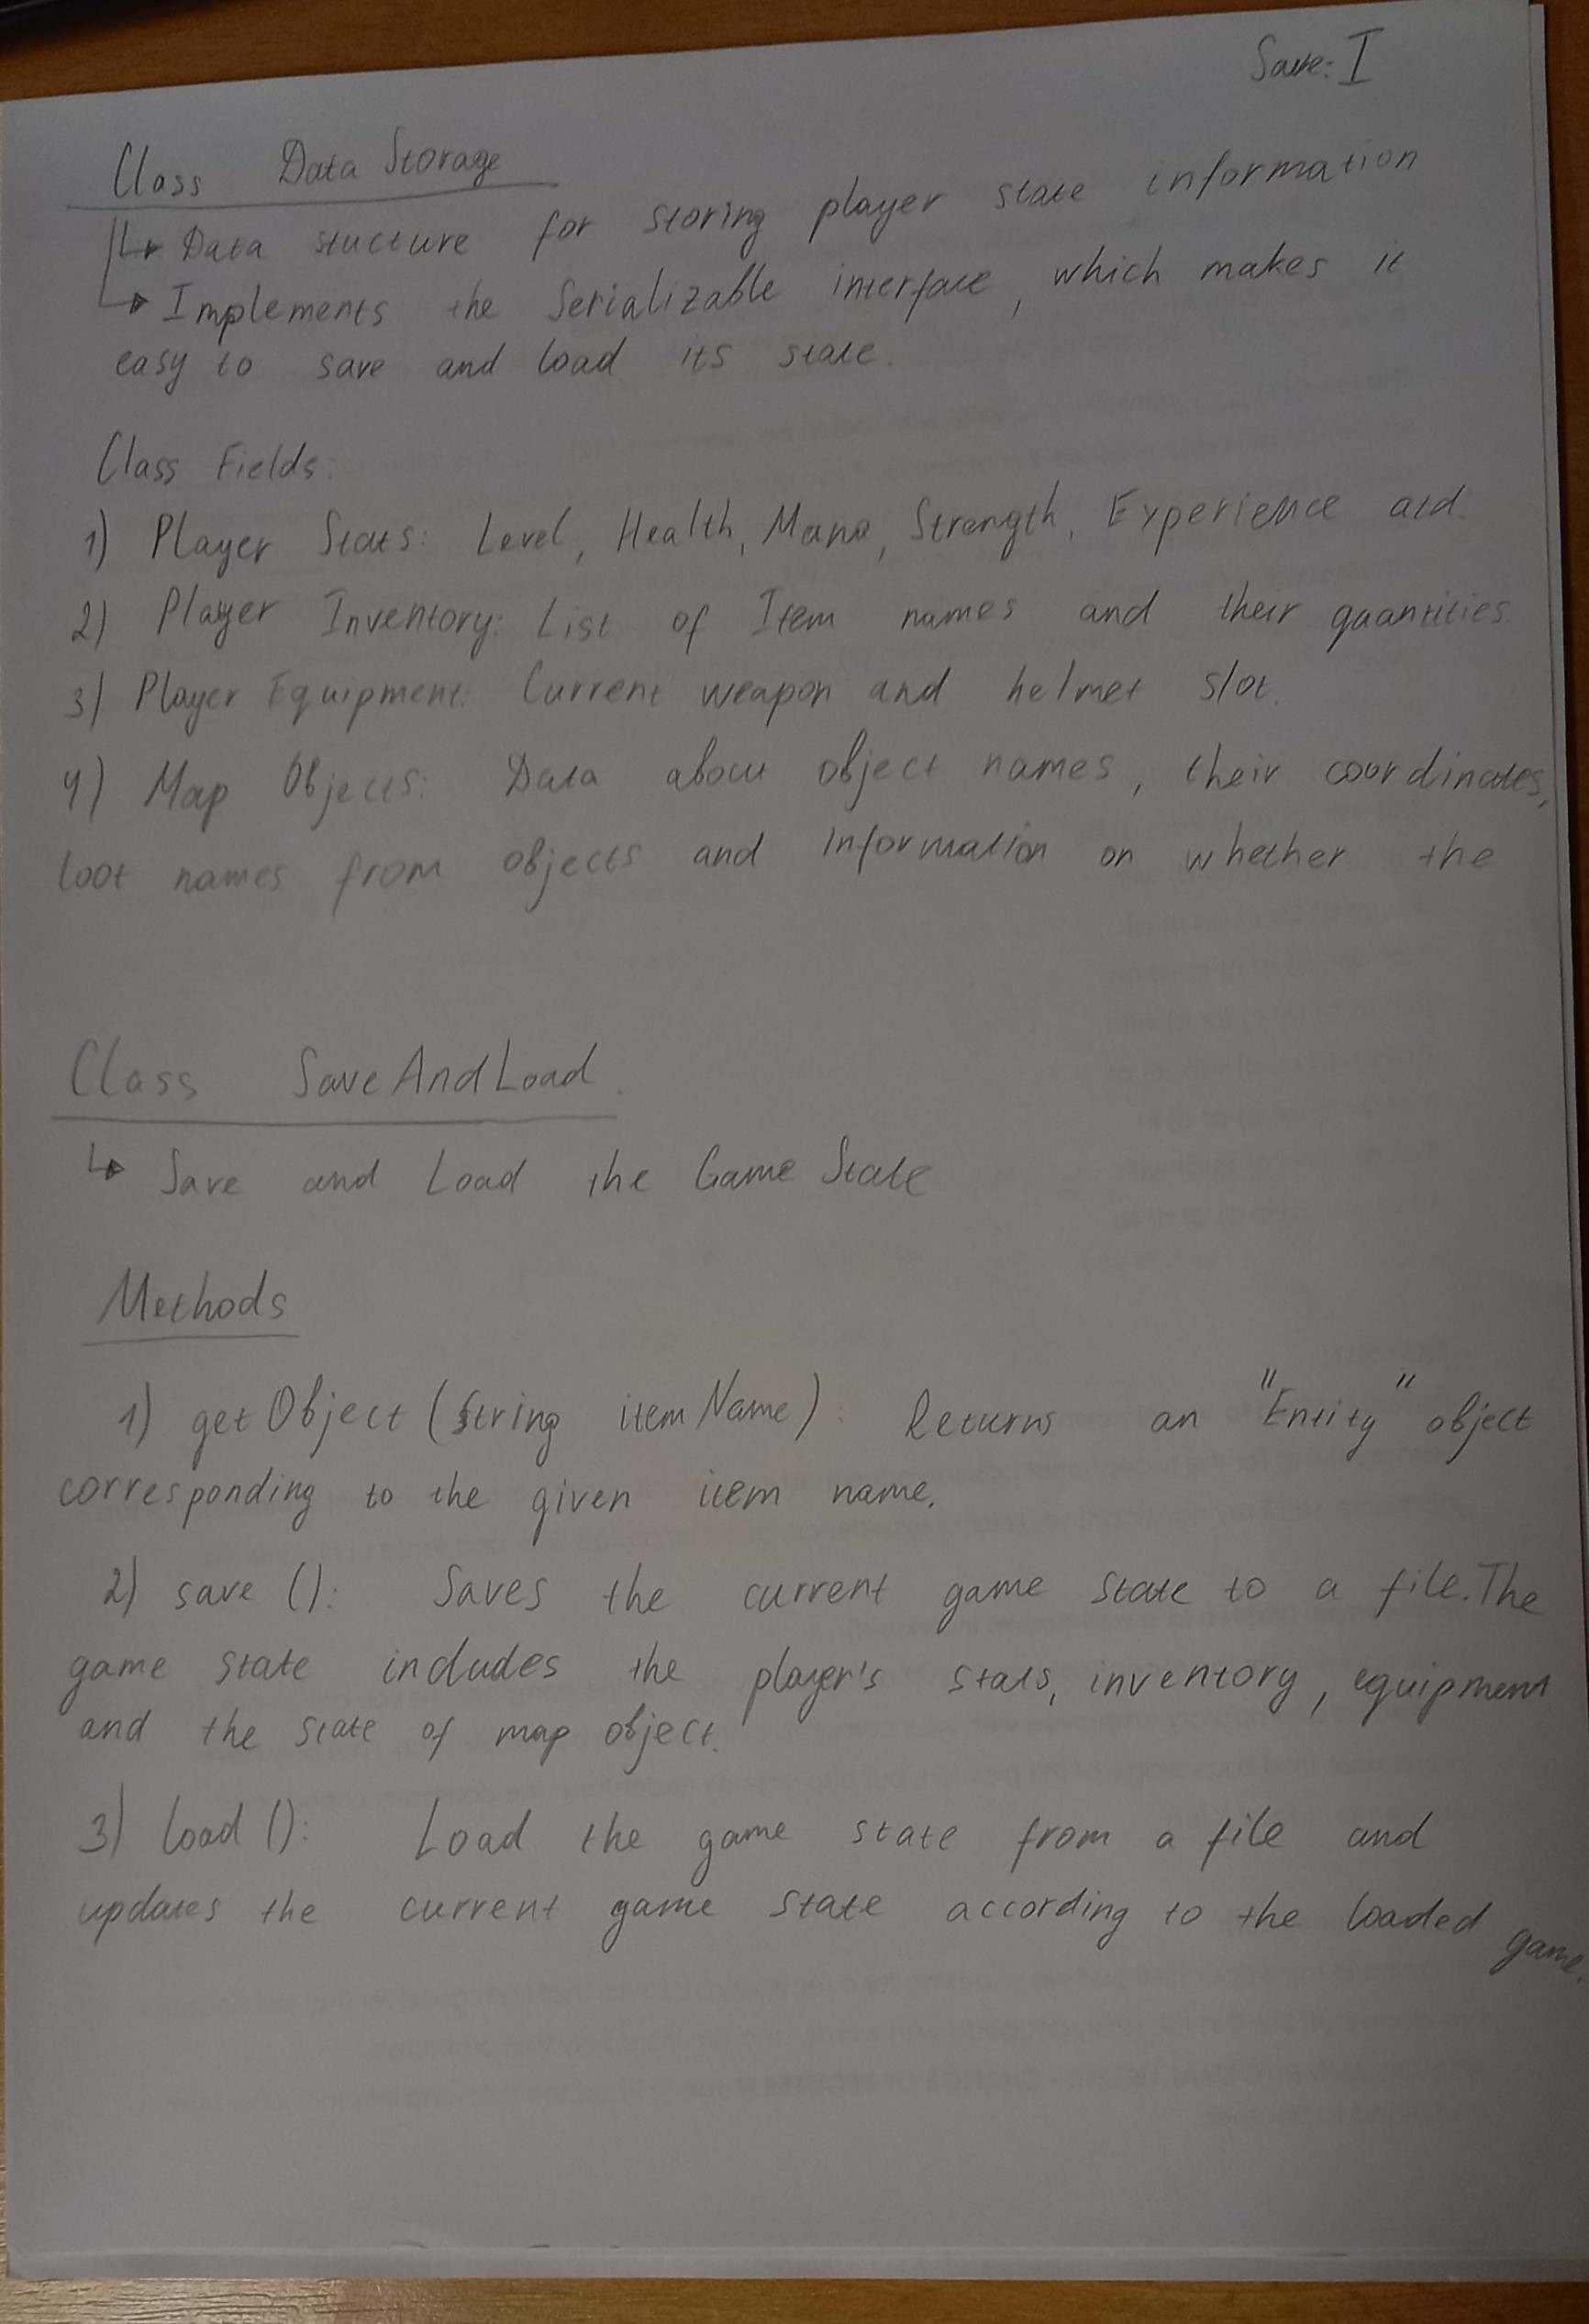 Save: I
Class Data Storage
Data stucture for storing player state information
Implements the Serializable interface, which makes it
easy to save and load its state.
Class Fields:
1) Player Stats: Level, Health, Mana, Strength, Experience
2) Player Inventory: List of Item names and their quantities
3) Player Equipment: Current weapon and helmet slot.
4) Map Objects: Data about object names, their coordinates,
loot names from objects and information on whether the
Class SaveAndLoad.
Save and Load the Game State
Methods
1) getObject (String itemName): Returns an "Entity" object
corresponding to the given item name.
2) save (): Saves the current game state to a file. The
game state includes the player's stats, inventory, equipment
and the state of map object.
3) load (): Load the game state from a file and
updates the current game state according to the loaded
game.